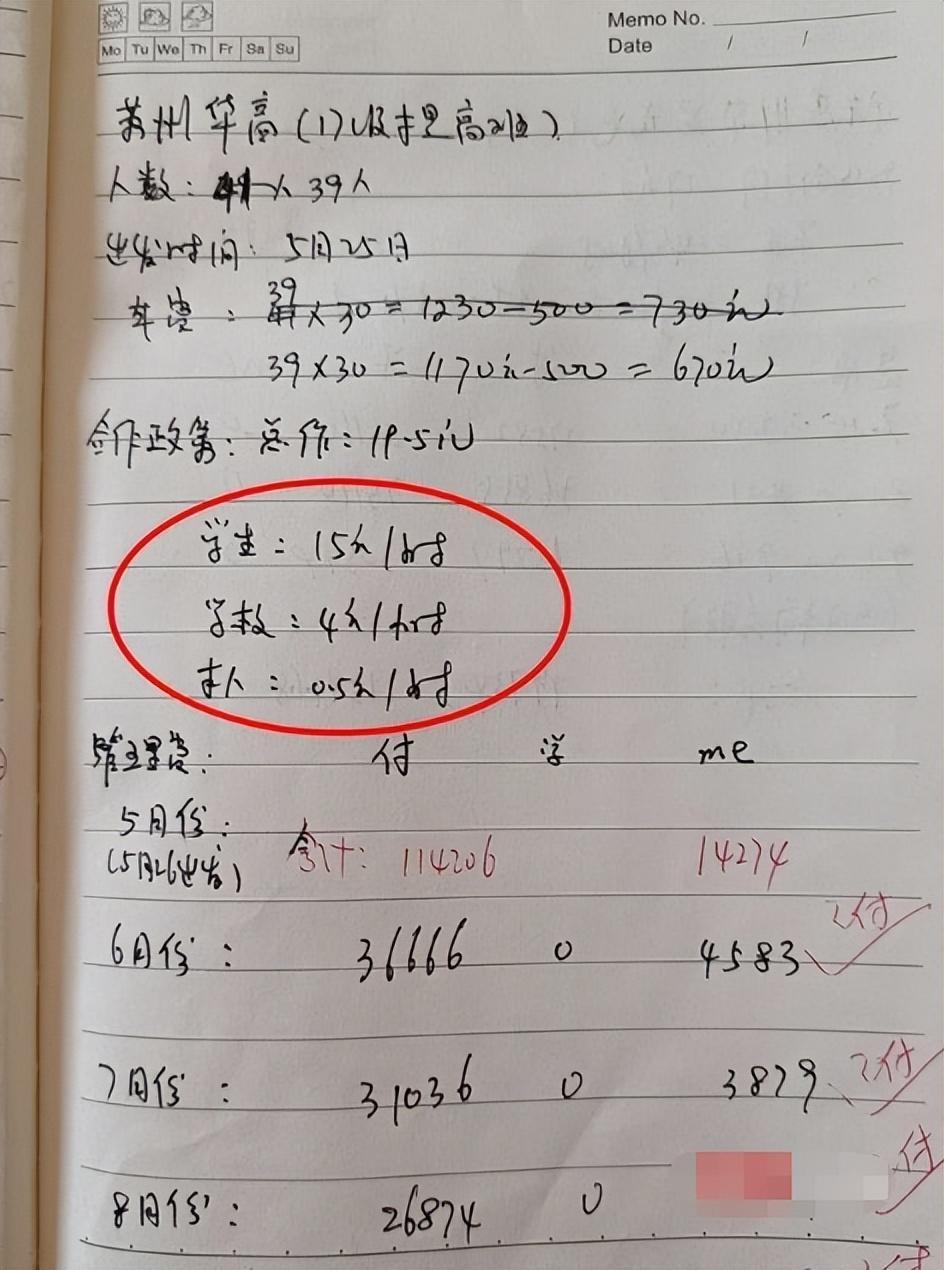 Memo No.
Mo Tu We Th Fr Sa Su
Date / /
苏州华高(17级护理高班)
人数: 41人 39人
出发时间: 5月25日
39
车费: 41×30=1230-500=730元
39×30=1170元-500=670元
合作政策: 总价: 19.5元
学生: 15元/小时
学校: 4元/小时
本人: 0.5元/小时
管理费: 付 学 me
5月份:
(5月26出发) 合计: 114206 14274
6月份: 36666 0 4583 已付
7月份: 31036 0 3879 已付
8月份: 26874 0 付